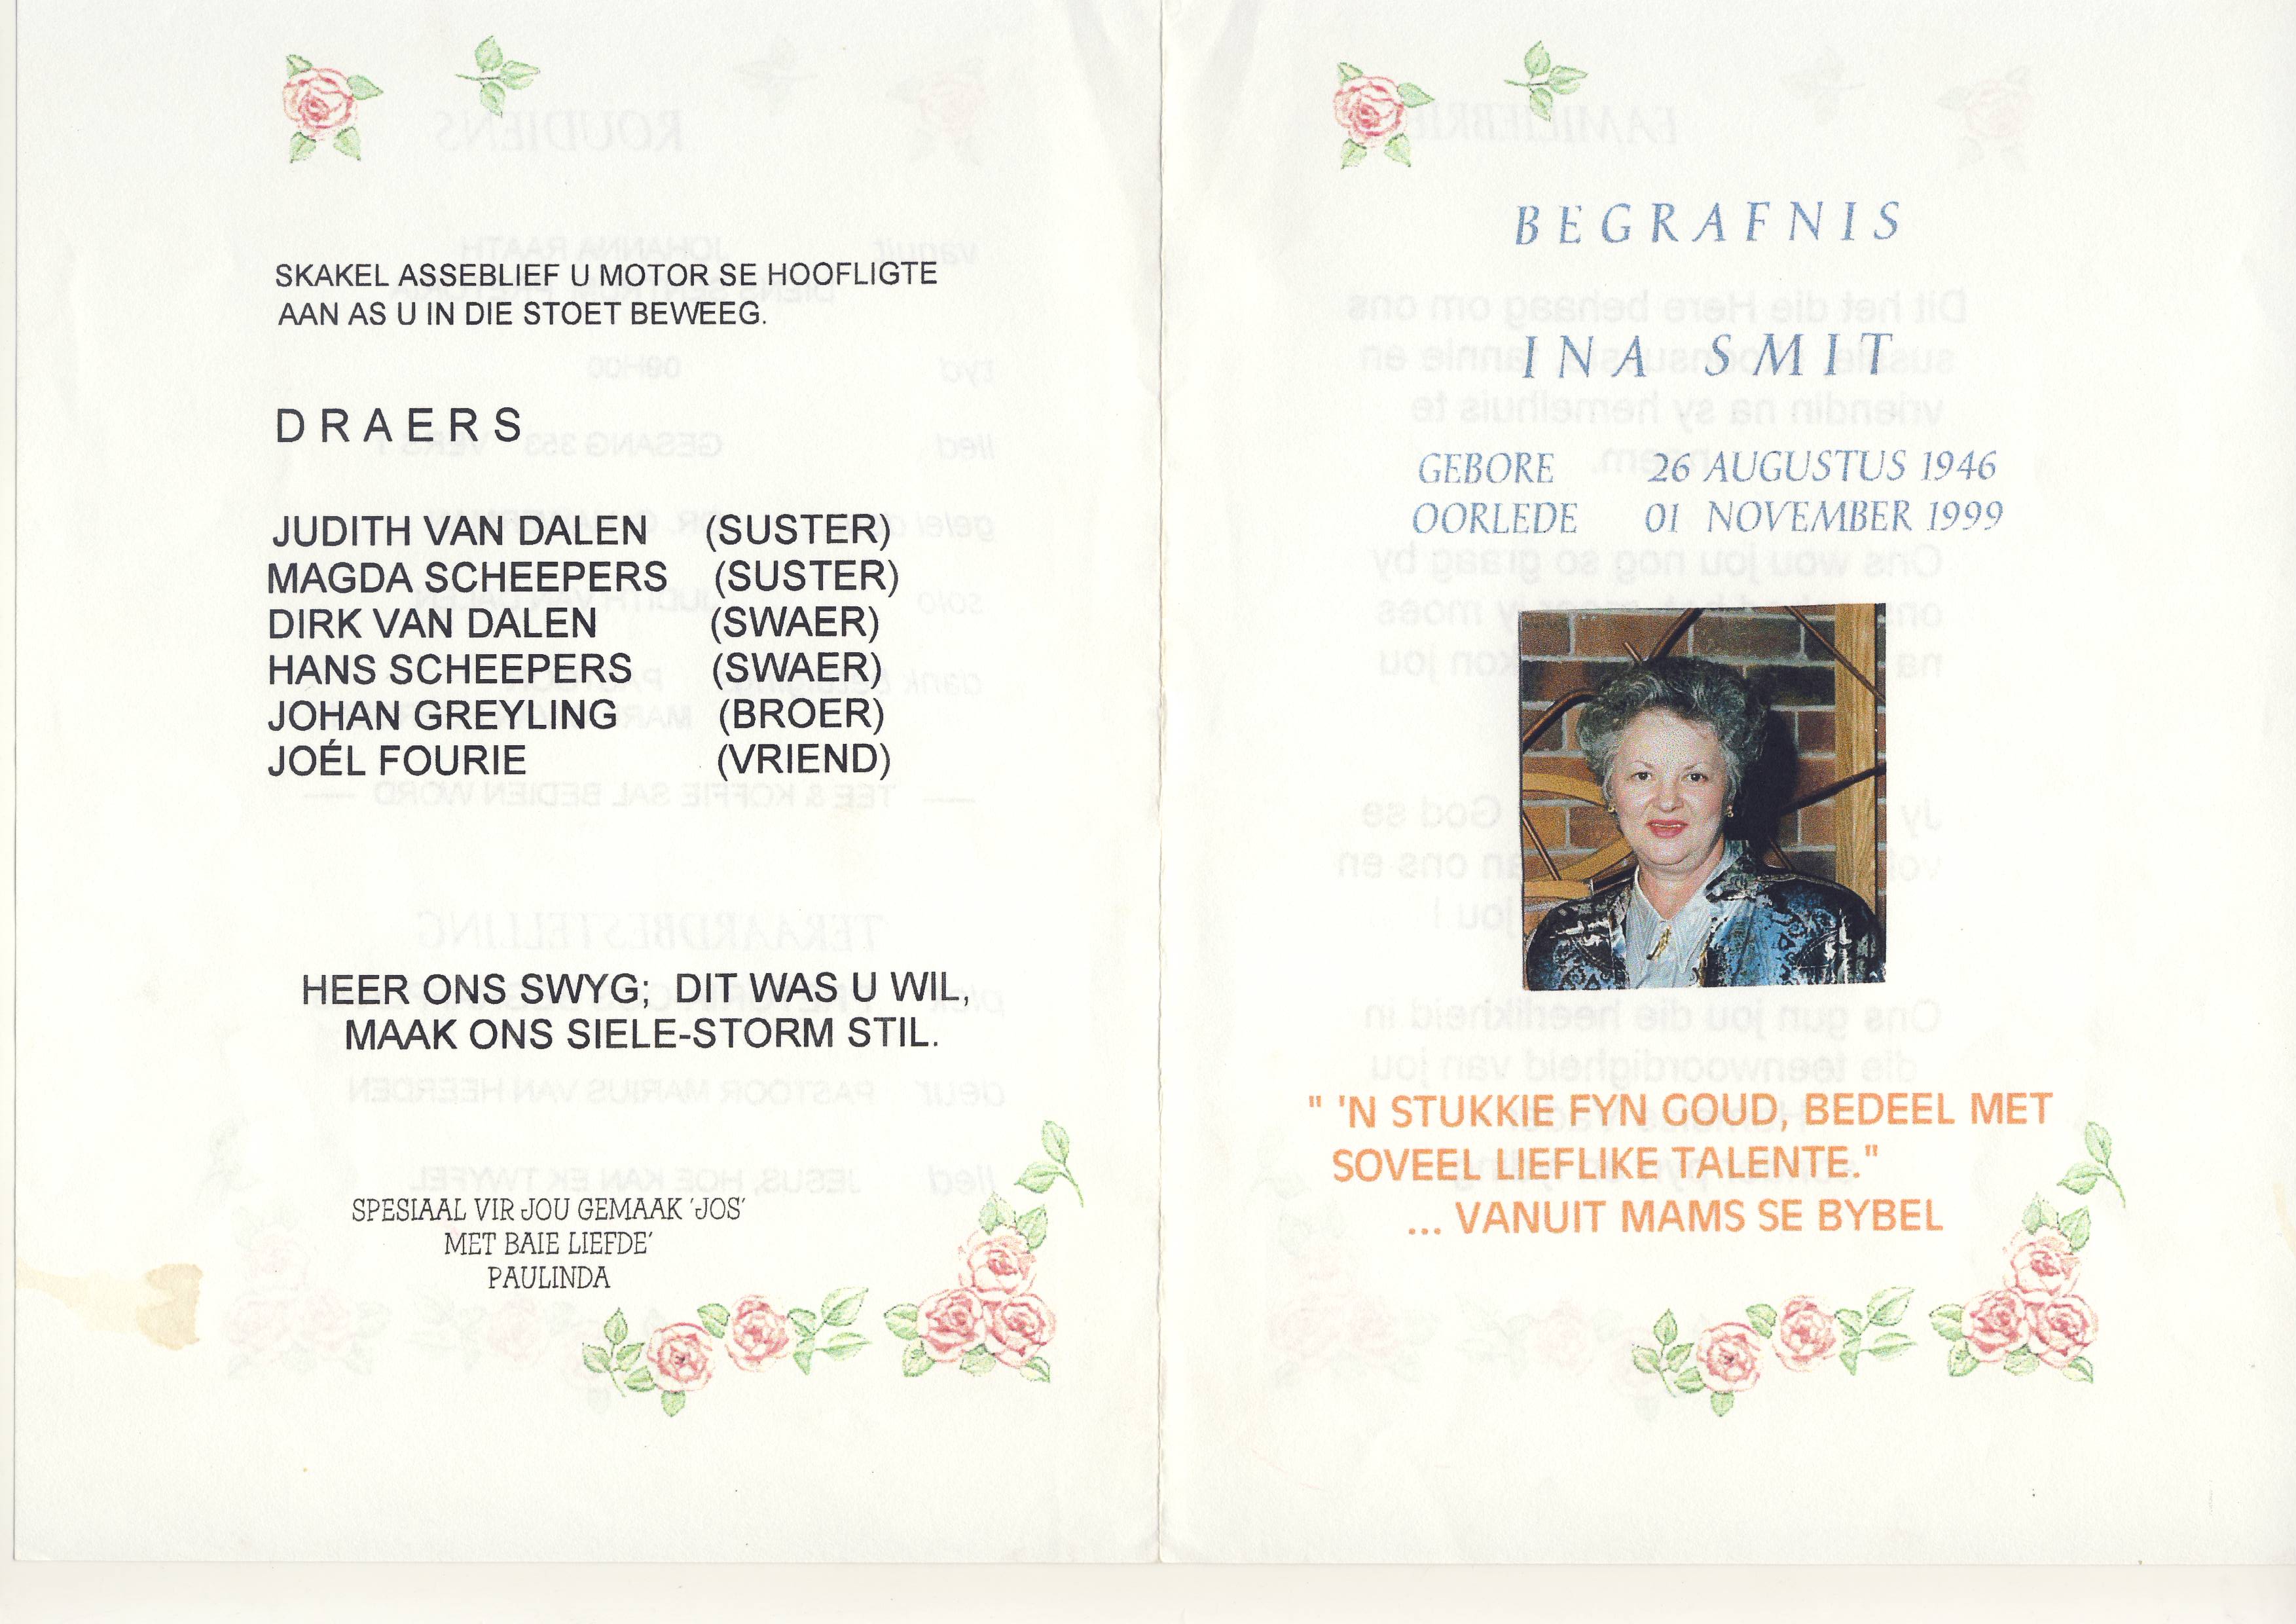 SKAKEL ASSEBLIEF U MOTOR SE HOOFLIGTE
AAN AS U IN DIE STOET BEWEEG.
DRAERS
JUDITH VAN DALEN (SUSTER)
MAGDA SCHEEPERS (SUSTER)
DIRK VAN DALEN (SWAER)
HANS SCHEEPERS (SWAER)
JOHAN GREYLING (BROER)
JOÉL FOURIE (VRIEND)
HEER ONS SWYG; DIT WAS U WIL,
MAAK ONS SIELE-STORM STIL.
SPESIAAL VIR JOU GEMAAK 'JOS'
MET BAIE LIEFDE'
PAULINDA
BEGRAFNIS
INA SMIT
GEBORE 26 AUGUSTUS 1946
OORLEDE 01 NOVEMBER 1999
" 'N STUKKIE FYN GOUD, BEDEEL MET
SOVEEL LIEFLIKE TALENTE."
... VANUIT MAMS SE BYBEL